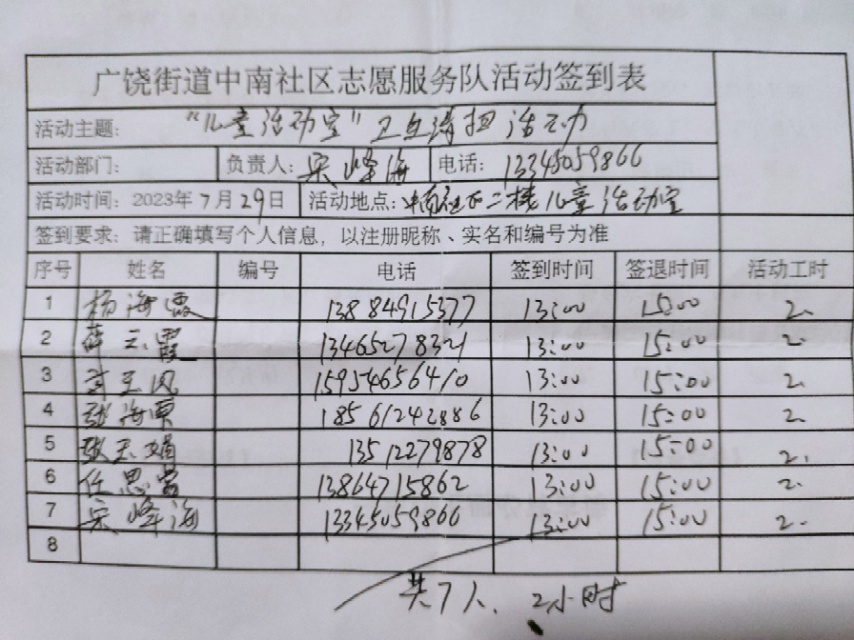 广饶街道中南社区志愿服务队活动签到表
活动主题： "儿童活动室"卫生清扫活动
活动部门： 负责人：宋峰海 电话：13345059866
活动时间：2023年7月29日 活动地点：中南社区二楼儿童活动室
签到要求：请正确填写个人信息，以注册昵称、实名和编号为准
序号 姓名 编号 电话 签到时间 签退时间 活动工时
1 杨海霞 13884915377 13:00 15:00 2.
2 薛云霞 13465278321 13:00 15:00 2.
3 玉凤 15954656410 13:00 15:00 2.
4 张海 18561242886 13:00 15:00 2.
5 张玉娟 13512279878 13:00 15:00 2.
6 任思 13864715862 13:00 15:00 2.
7 宋峰海 13345059866 13:00 15:00 2.
8
共7人、2小时